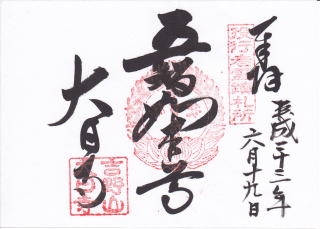 奉拝
平成二十三年
六月十九日
五智如来
大日寺
吉野山
大日寺